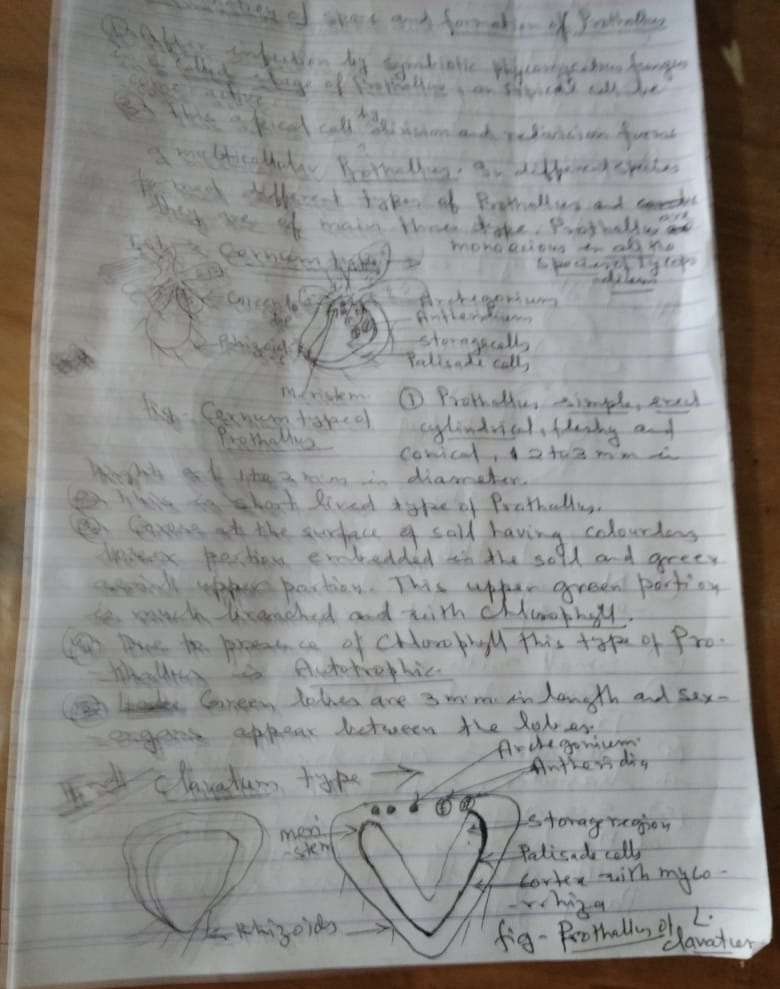 of spore and formation of Prothallus
① After infection by symbiotic phycomycetous fungus
called stage of Prothallus, an apical cell be
active
② This apical cell by division and redivision forms
a multicellular Prothallus. In different species
different types of Prothallus and
they are of main three type. Prothallus are
monoecious in all the
species of Lycop
odium
Cernum type →
Green lo
be
Archegonium
Antheridium
Storage cells
Rhizoid
Palisade cells
Meristem
fig- Cernum type of
Prothallus
① Prothallus simple, erect
cylindrical, fleshy and
conical, 2 to 3 mm in
height & 1 to 2 mm in diameter.
② This is short lived type of Prothallus.
③ Grows at the surface of soil having colourless
lower portion embedded in the soil and green
aerial upper portion. This upper green portion
is much branched and with chlorophyll.
④ Due to presence of chlorophyll this type of Pro-
thallus is Autotrophic.
⑤ Green lobes are 3 mm in length and sex-
organs appear between the lobes.
Clavatum type →
Archegonium
Antheridia
meri
-stem
Storage region
Palisade cells
Cortex with myco-
-rrhiza
Rhizoids
fig- Prothallus of L.
clavatum